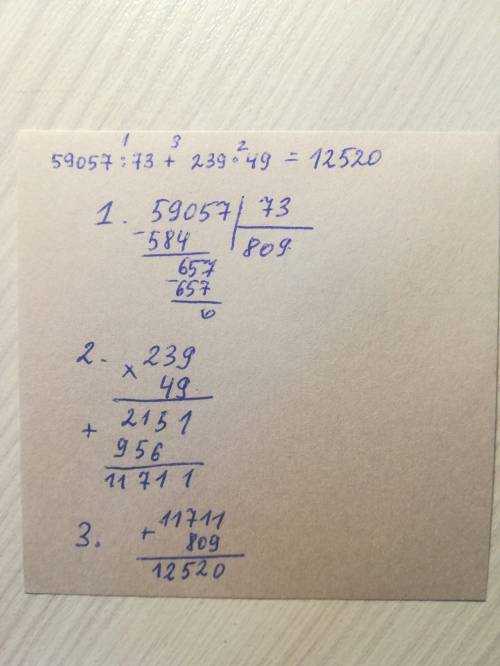 1 3 2
59057 : 73 + 239 · 49 = 12520
1. 59057 | 73
- 584 809
657
- 657
0
2. × 239
49
+ 2151
956
11711
3. + 11711
809
12520